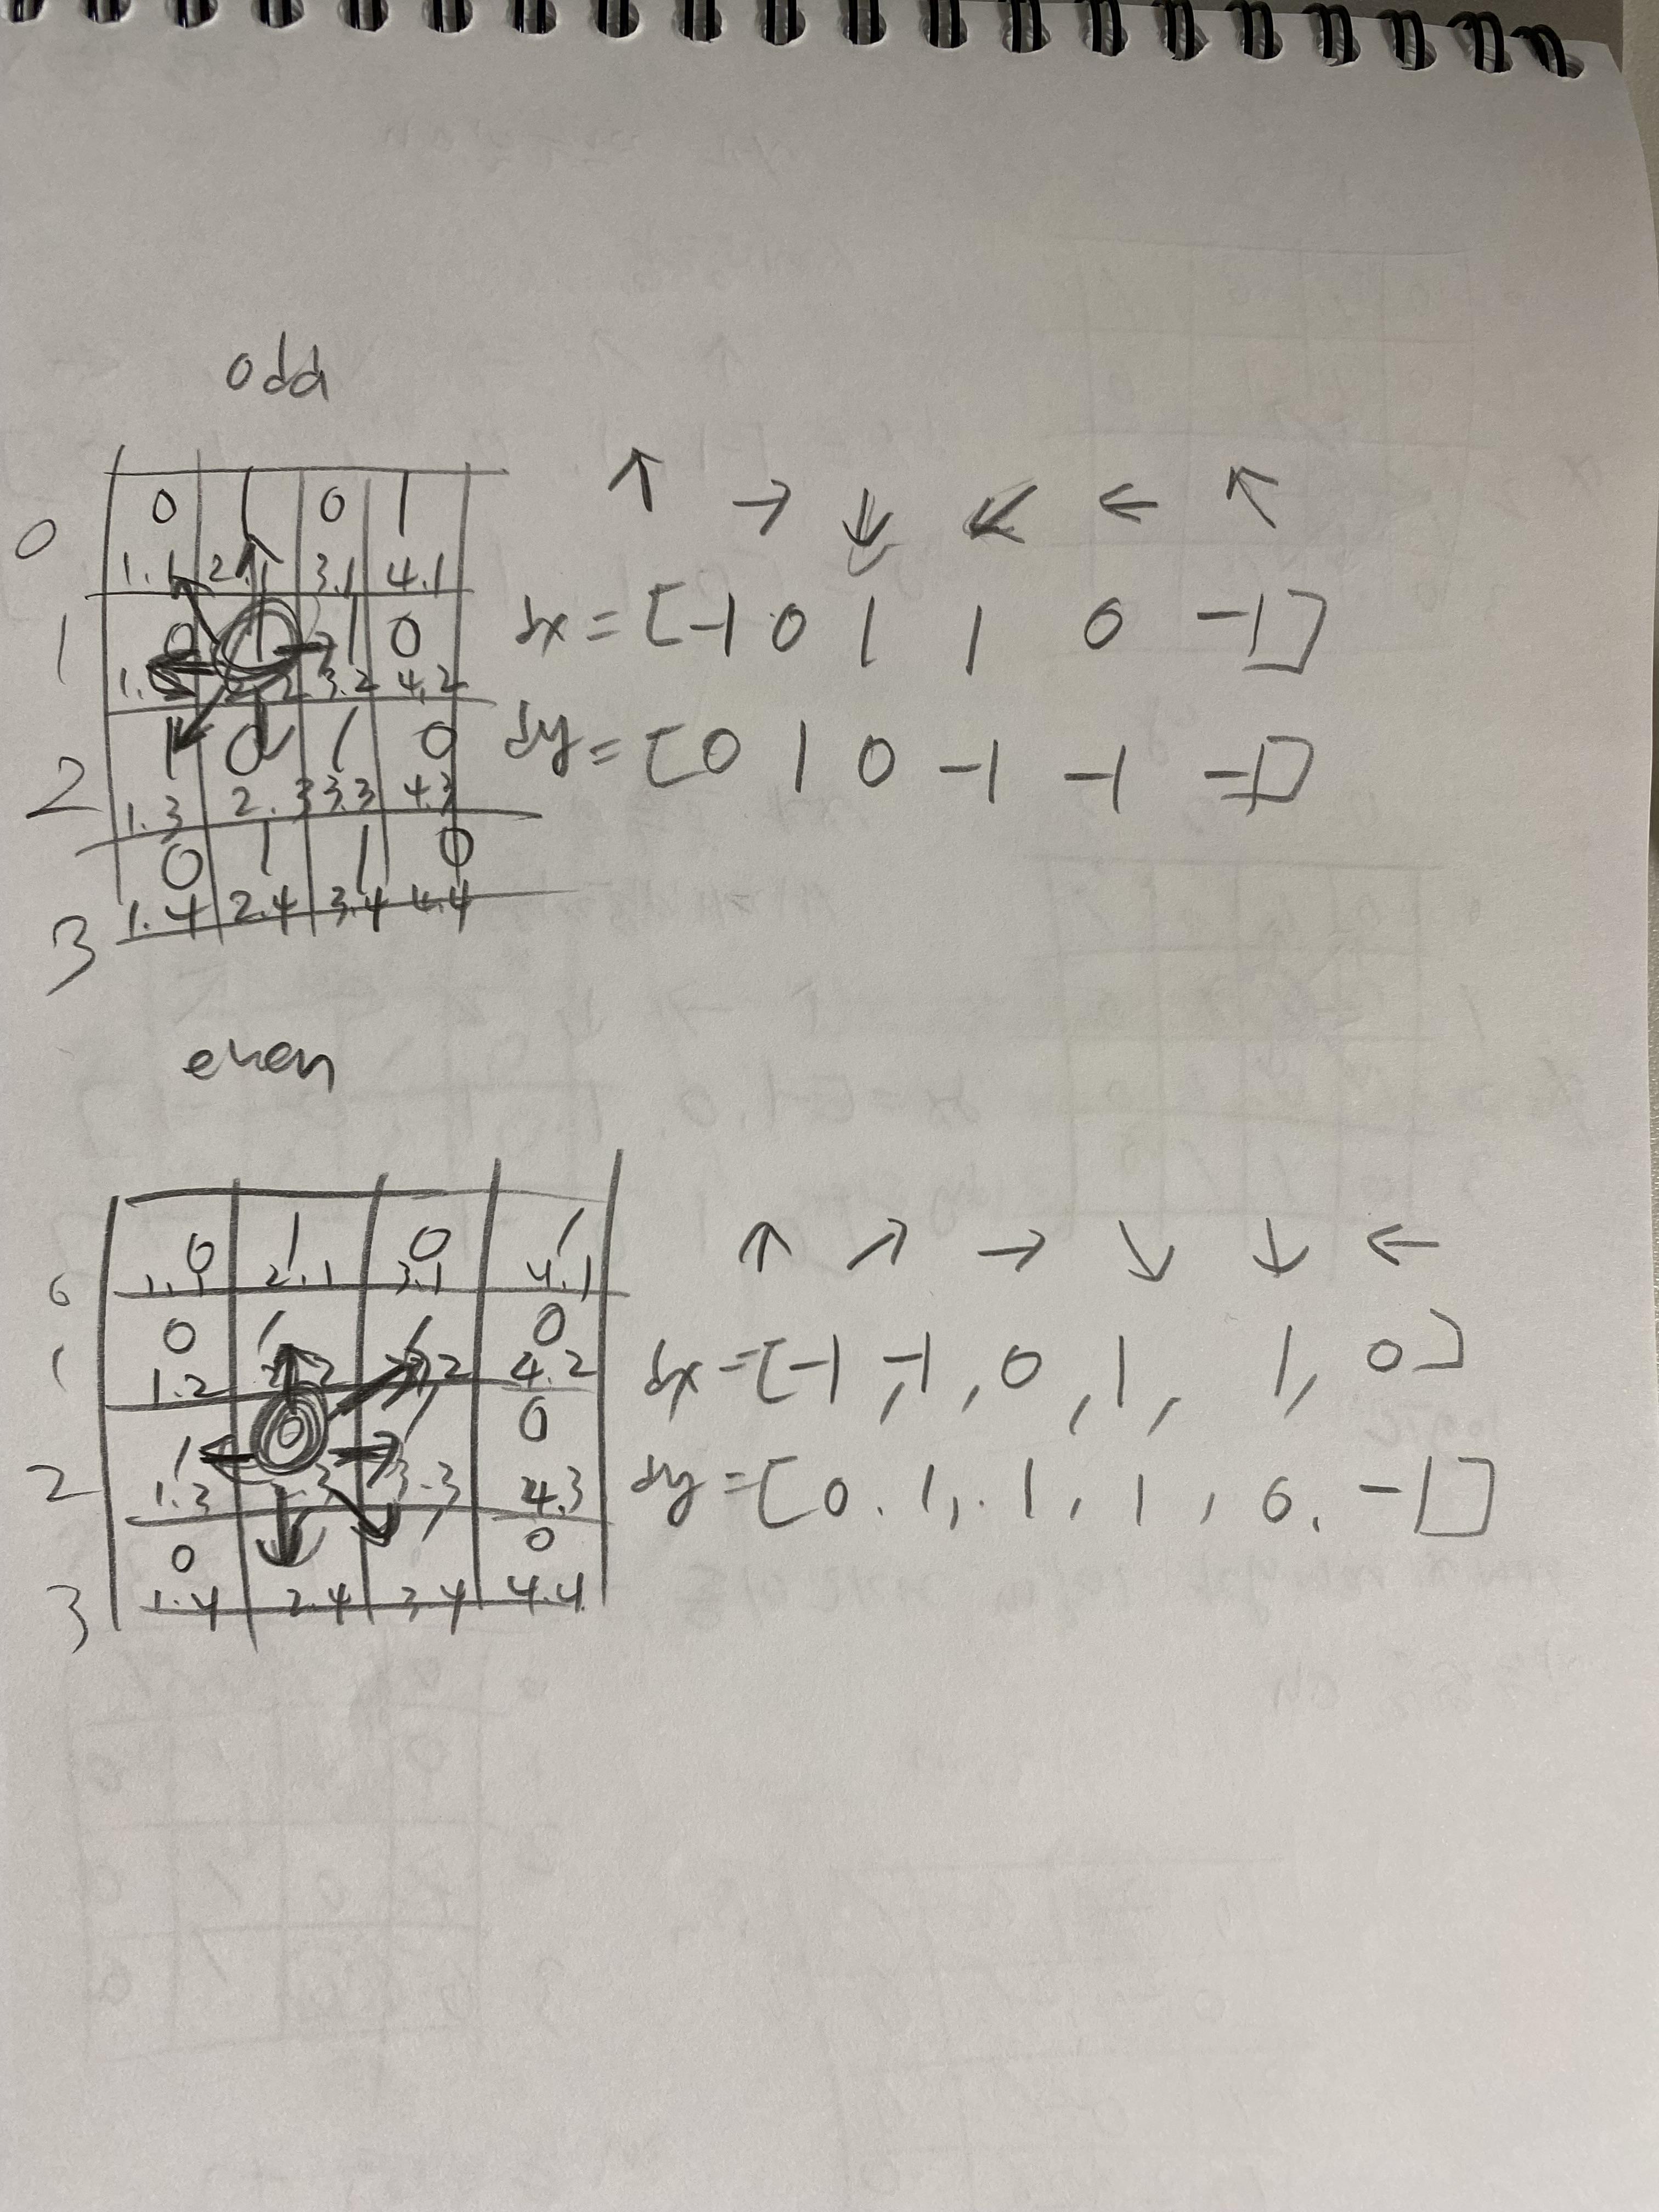 odd
↑ → ↓ ↙ ← ↖
0 0 1 0 1
1.1 2.1 3.1 4.1
dx = [-1 0 1 1 0 -1]
1 0 1 1 0
1.2 2.2 3.2 4.2
dy = [0 1 0 -1 -1 -1]
2 1 0 1 0
1.3 2.3 3.3 4.3
0 1 1 0
3 1.4 2.4 3.4 4.4
even
↑ ↗ → ↘ ↓ ←
0 1 0 1
0 1.1 2.1 3.1 4.1
0 1 1 0
1 1.2 2.2 3.2 4.2
dx = [-1, -1, 0, 1, 1, 0]
1 0 1 0
2 1.3 2.3 3.3 4.3
dy = [0. 1, 1, 1, 0, -1]
0 0
3 1.4 2.4 3.4 4.4